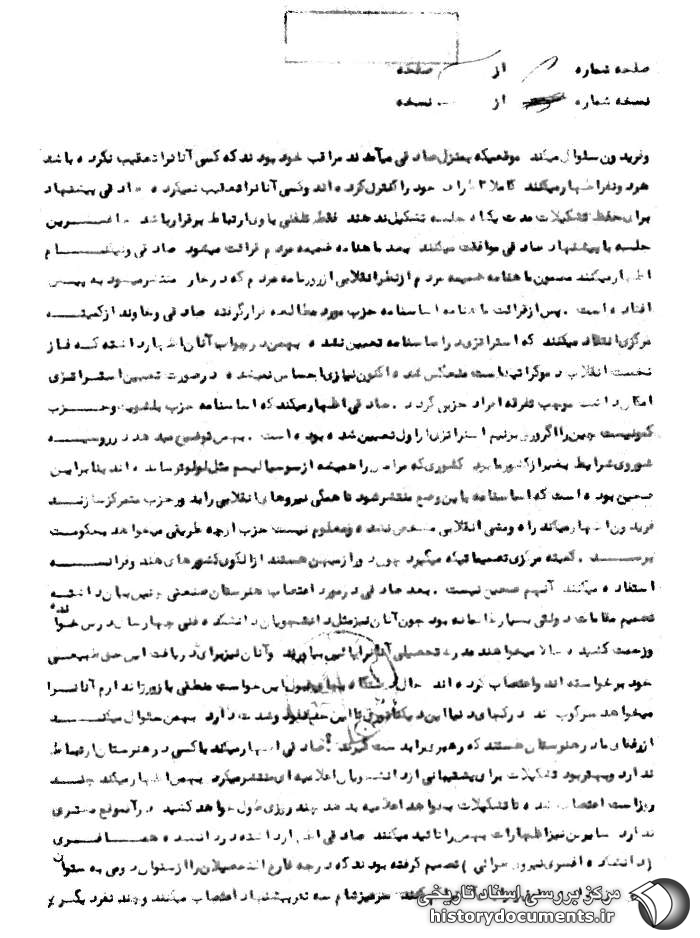 صفحه شماره از صفحه
نسخه شماره از نسخه
وفریدون سئوال میکند موقعیکه بمنزل صادقی میآمدند مراقب خود بودند که کسی آنانرا تعقیب نکرده باشد
هر دو نفر اظهار میکنند کاملا اطراف خود را کنترل کرده اند وکسی آنانرا تعقیب نمیکرده صادقی پیشنهاد
برای حفظ تشکیلات مدت یکماه جلسه تشکیل ندهند فقط تلفنی باوی ارتباط برقرار باشد حاضرین
جلسه با پیشنهاد صادقی موافقت میکنند بعد ماهنامه ضمیمه مردم قرائت میشود صادقی و
اظهار میکنند مضمون ماهنامه ضمیمه مردم از نظر انقلابی از روزنامه مردم که در خارج منتشر میشود به پیش
افتاده است . پس از قرائت ماهنامه اساسنامه حزب مورد مطالعه قرار گرفته صادقی وخاوند از کمیته
مرکزی انتقاد میکنند که استراتژی در اساسنامه تعیین نشده بهمن در جواب آنان اظهار داشته که فاز
نخست انقلاب دموکراتیک است منعکس شده اکنون نیازی احساس نمیشده در صورت تعیین استراتژی
امکان داشت موجب تفرقه افراد حزبی گردد . صادقی اظهار میکند که اساسنامه حزب بلشویک وحزب
کمونیست چین را اگر ورق بزنیم استراتژی از اول تعیین شده بوده است . بهمن توضیح میدهد در روسیه
شوروی شرایط بغیر از کشور ما بود کشوری که مردمش را همیشه از سوسیالیسم مثل لولو ترسانده اند بنابراین
صحیح بوده است که اساسنامه باین وضع منتشر شود تا همگی نیروهای انقلابی را بدور حزب متمرکز سازند
فریدون اظهار میکند راه ومشی انقلابی مشخص نشده ومعلوم نیست حزب از چه طریقی میخواهد بحکومت
برسد . کمیته مرکزی تصمیماتیکه میگیرد چون دور از میهن هستند از الگوی کشورهای هند وفرانسه
استفاده میکنند آنهم صحیح نیست . بعد صادقی در مورد اعتصاب هنرستان صنعتی چنین بیان داشته
تصمیم مقامات دولتی بسیار ظالمانه بود چون آنان نیز مثل دانشجویان دانشکده فنی چهار سال درس خوانده
وزحمت کشیده حالا میخواهند مدرک تحصیلی آنانرا پائین بیاورند وآنان نیز برای دریافت این حق طبیعی
خود برخواسته اند واعتصاب کرده اند حال دستگاه بجای قبول این خواست منطقی با زور ژاندارم آنانرا
میخواهد سرکوب کند در کجای دنیا این دیکتاتوری تا این حد نفوذ وشدت دارد بهمن سئوال میکند
از رفقای ما در هنرستان هستند که رهبری را بدست گیرند ؟ صادقی اظهار میکند باکسی در هنرستان ارتباط
ندارد وبهتر بود تشکیلات برای پشتیبانی از دانشجویان اعلامیه ای منتشر میکرد بهمن اظهار میکند چند
روز است اعتصاب شده تا تشکیلات بخواهد اعلامیه بدهد چند روزی طول خواهد کشید در آنموقع دیگر ثمری
ندارد سایرین نیز اظهارات بهمن را تائید میکنند صادقی اظهار داشته در دانشکده همافری
( دانشکده افسری نیروی هوائی ) تصمیم گرفته بودند که درجه فارغ التحصیلان را از ستوان دومی به ستوان
سر میز شام سه نفر پیشنهاد اعتصاب میکنند وچند نفر دیگر نیز
مرکز بررسی اسناد تاریخی
historydocuments.ir